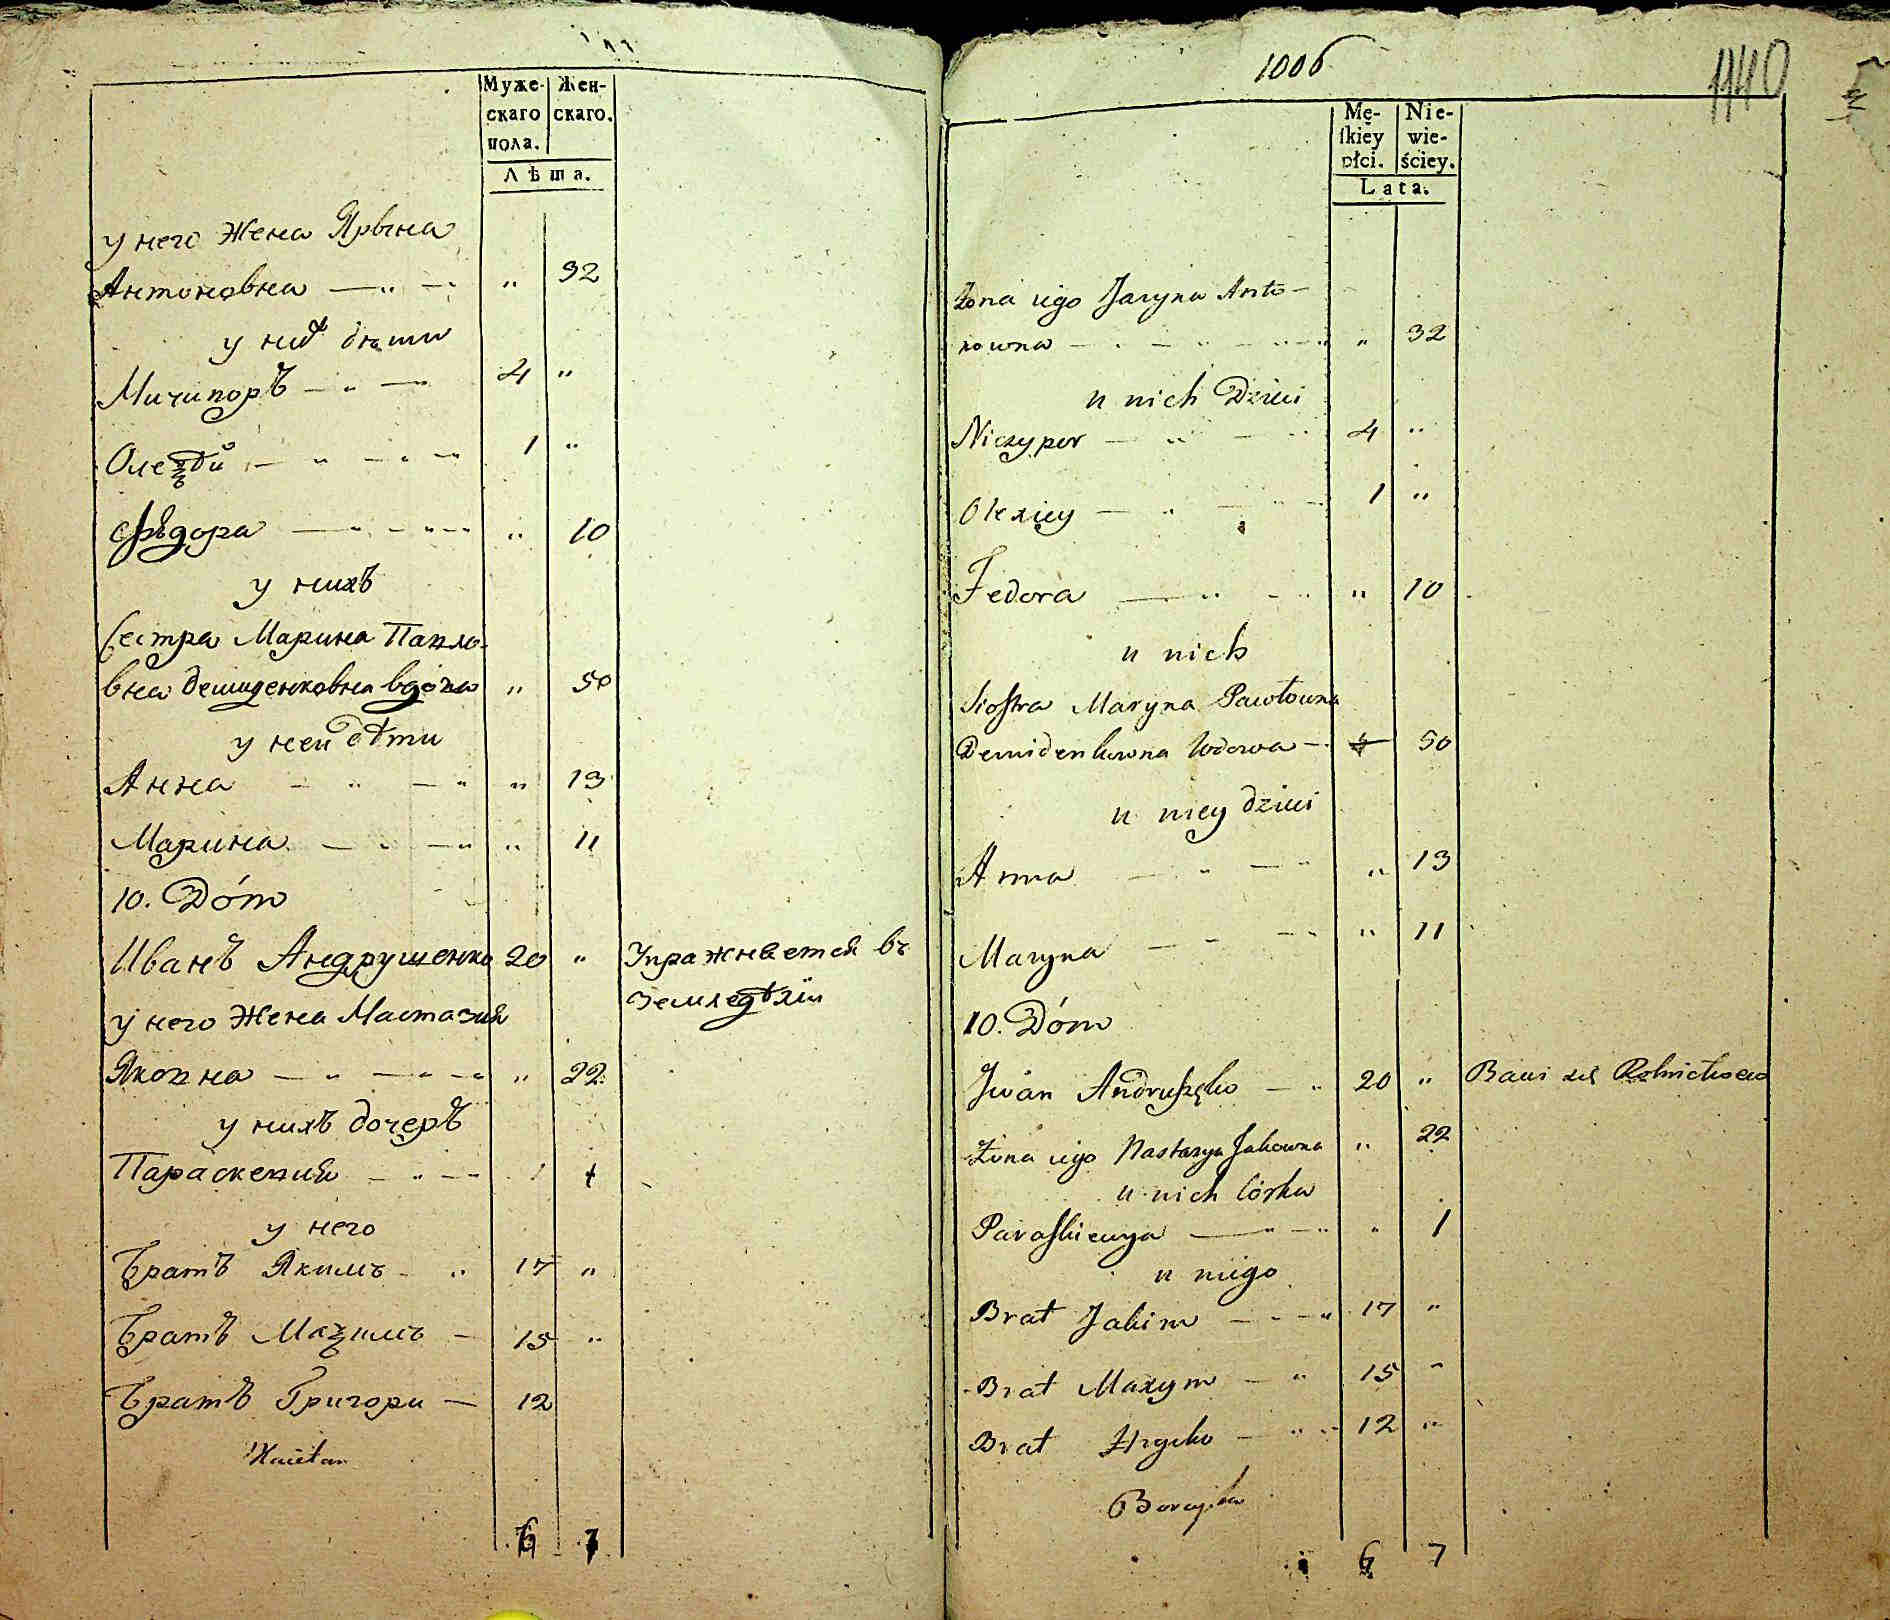 Муже- Жен-
скаго скаго.
пола.
Лѣта.
у него Жена Ярына
Антоновна — " — " 32
у них дѣти
Мичипоръ — " — 4 "
Олеѯѣй — " — " — 1 "
Ѳѣдора — " — " — " 10
у нихъ
Сестра Марина Павло-
вна демиденковна вдова " 50
у ней дѣти
Анна — " — " " 13
Марина — " — " " 11
10. Dóm
Иванъ Андрушенко 20 " Упражнается въ
земледѣлїи
у него Жена Настазия
Яковна — " — " — " 22
у нихъ дочеръ
Параскевия — " — 1
у него
Братъ Якимъ — " 17 "
Братъ Маѯимъ — 15 "
Братъ Григори — 12
Kaietan
6 7
1006
1140
Mę- Nie-
ſkiey wie-
płci. ściey.
Lata.
Żona iego Jaryna Anto-
nowna — " — " — " " 32
u nich Dzieci
Niczypor — " — " 4 "
Olexiey — " — 1 "
Fedora — " — " " 10
u nich
Siostra Maryna Pawłowna
Demidenkowna Wdowa — 50
u niey dzieci
Anna — " — " " 13
Maryna — " — " " 11
10. Dóm
Jwan Andruszęko — " 20 " Bawi się Rolnictwem
Żona iego Nastazya Jakowna " 22
u nich Córka
Paraskiewya — " — " " 1
u niego
Brat Jakim — " — " 17 "
Brat Maxym — " 15 "
Brat Hryćko — " — " 12 "
6 7